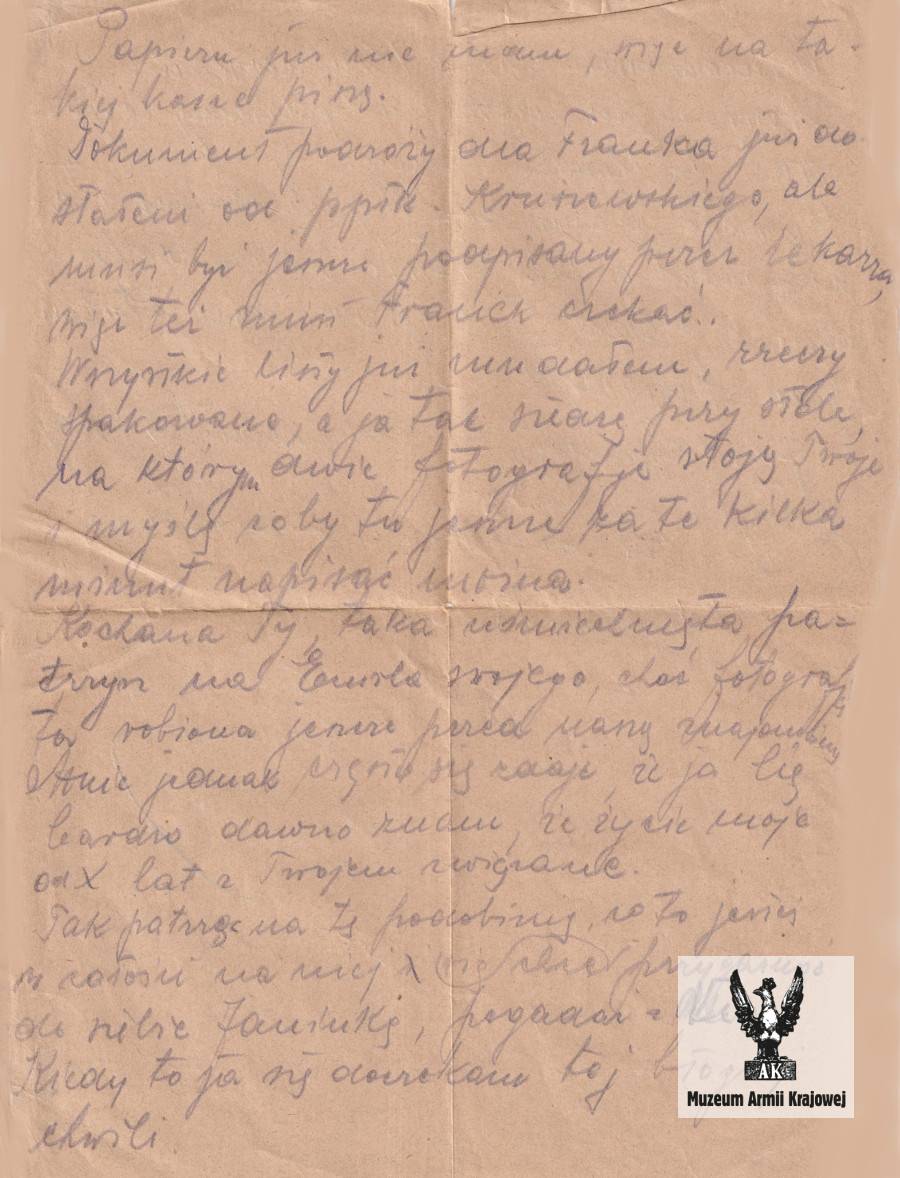 Papieru już nie mam, więc na ta-
kiej kartce piszę.
Dokument podróży dla Franka już do
stałem od ppłk. Kruszewskiego, ale
musi być jeszcze podpisany przez lekarza,
więc też musi Franek czekać.
Wszystkie listy już nadałem, rzeczy
spakowane, a ja tak siedzę przy stole,
na którym dwie fotografje stoję Twoje
i myślę coby tu jeszcze za te kilka
minut napisać można.
Kochana Ty, taka uśmiechnięta, pa=
trzysz na Emila swojego, choć fotografja
ta robiona jeszcze przed naszą znajomością
Mnie jednak często się zdaje, że ja Cię
bardzo dawno znam, że życie moje
od X lat z Twojem związane.
Tak patrzę na tę podobiznę, co to jesteś
w całości na niej i chcę
do siebie Janinkę, pogadać z
Kiedy to ja się doczekam tej
chwili.
AK
Muzeum Armii Krajowej